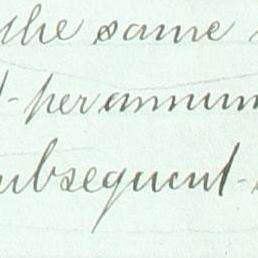 the same
per annum
subsequent